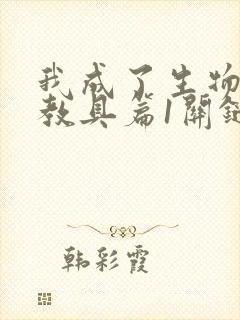 我成了生物
教具篇1開
韩彩霞